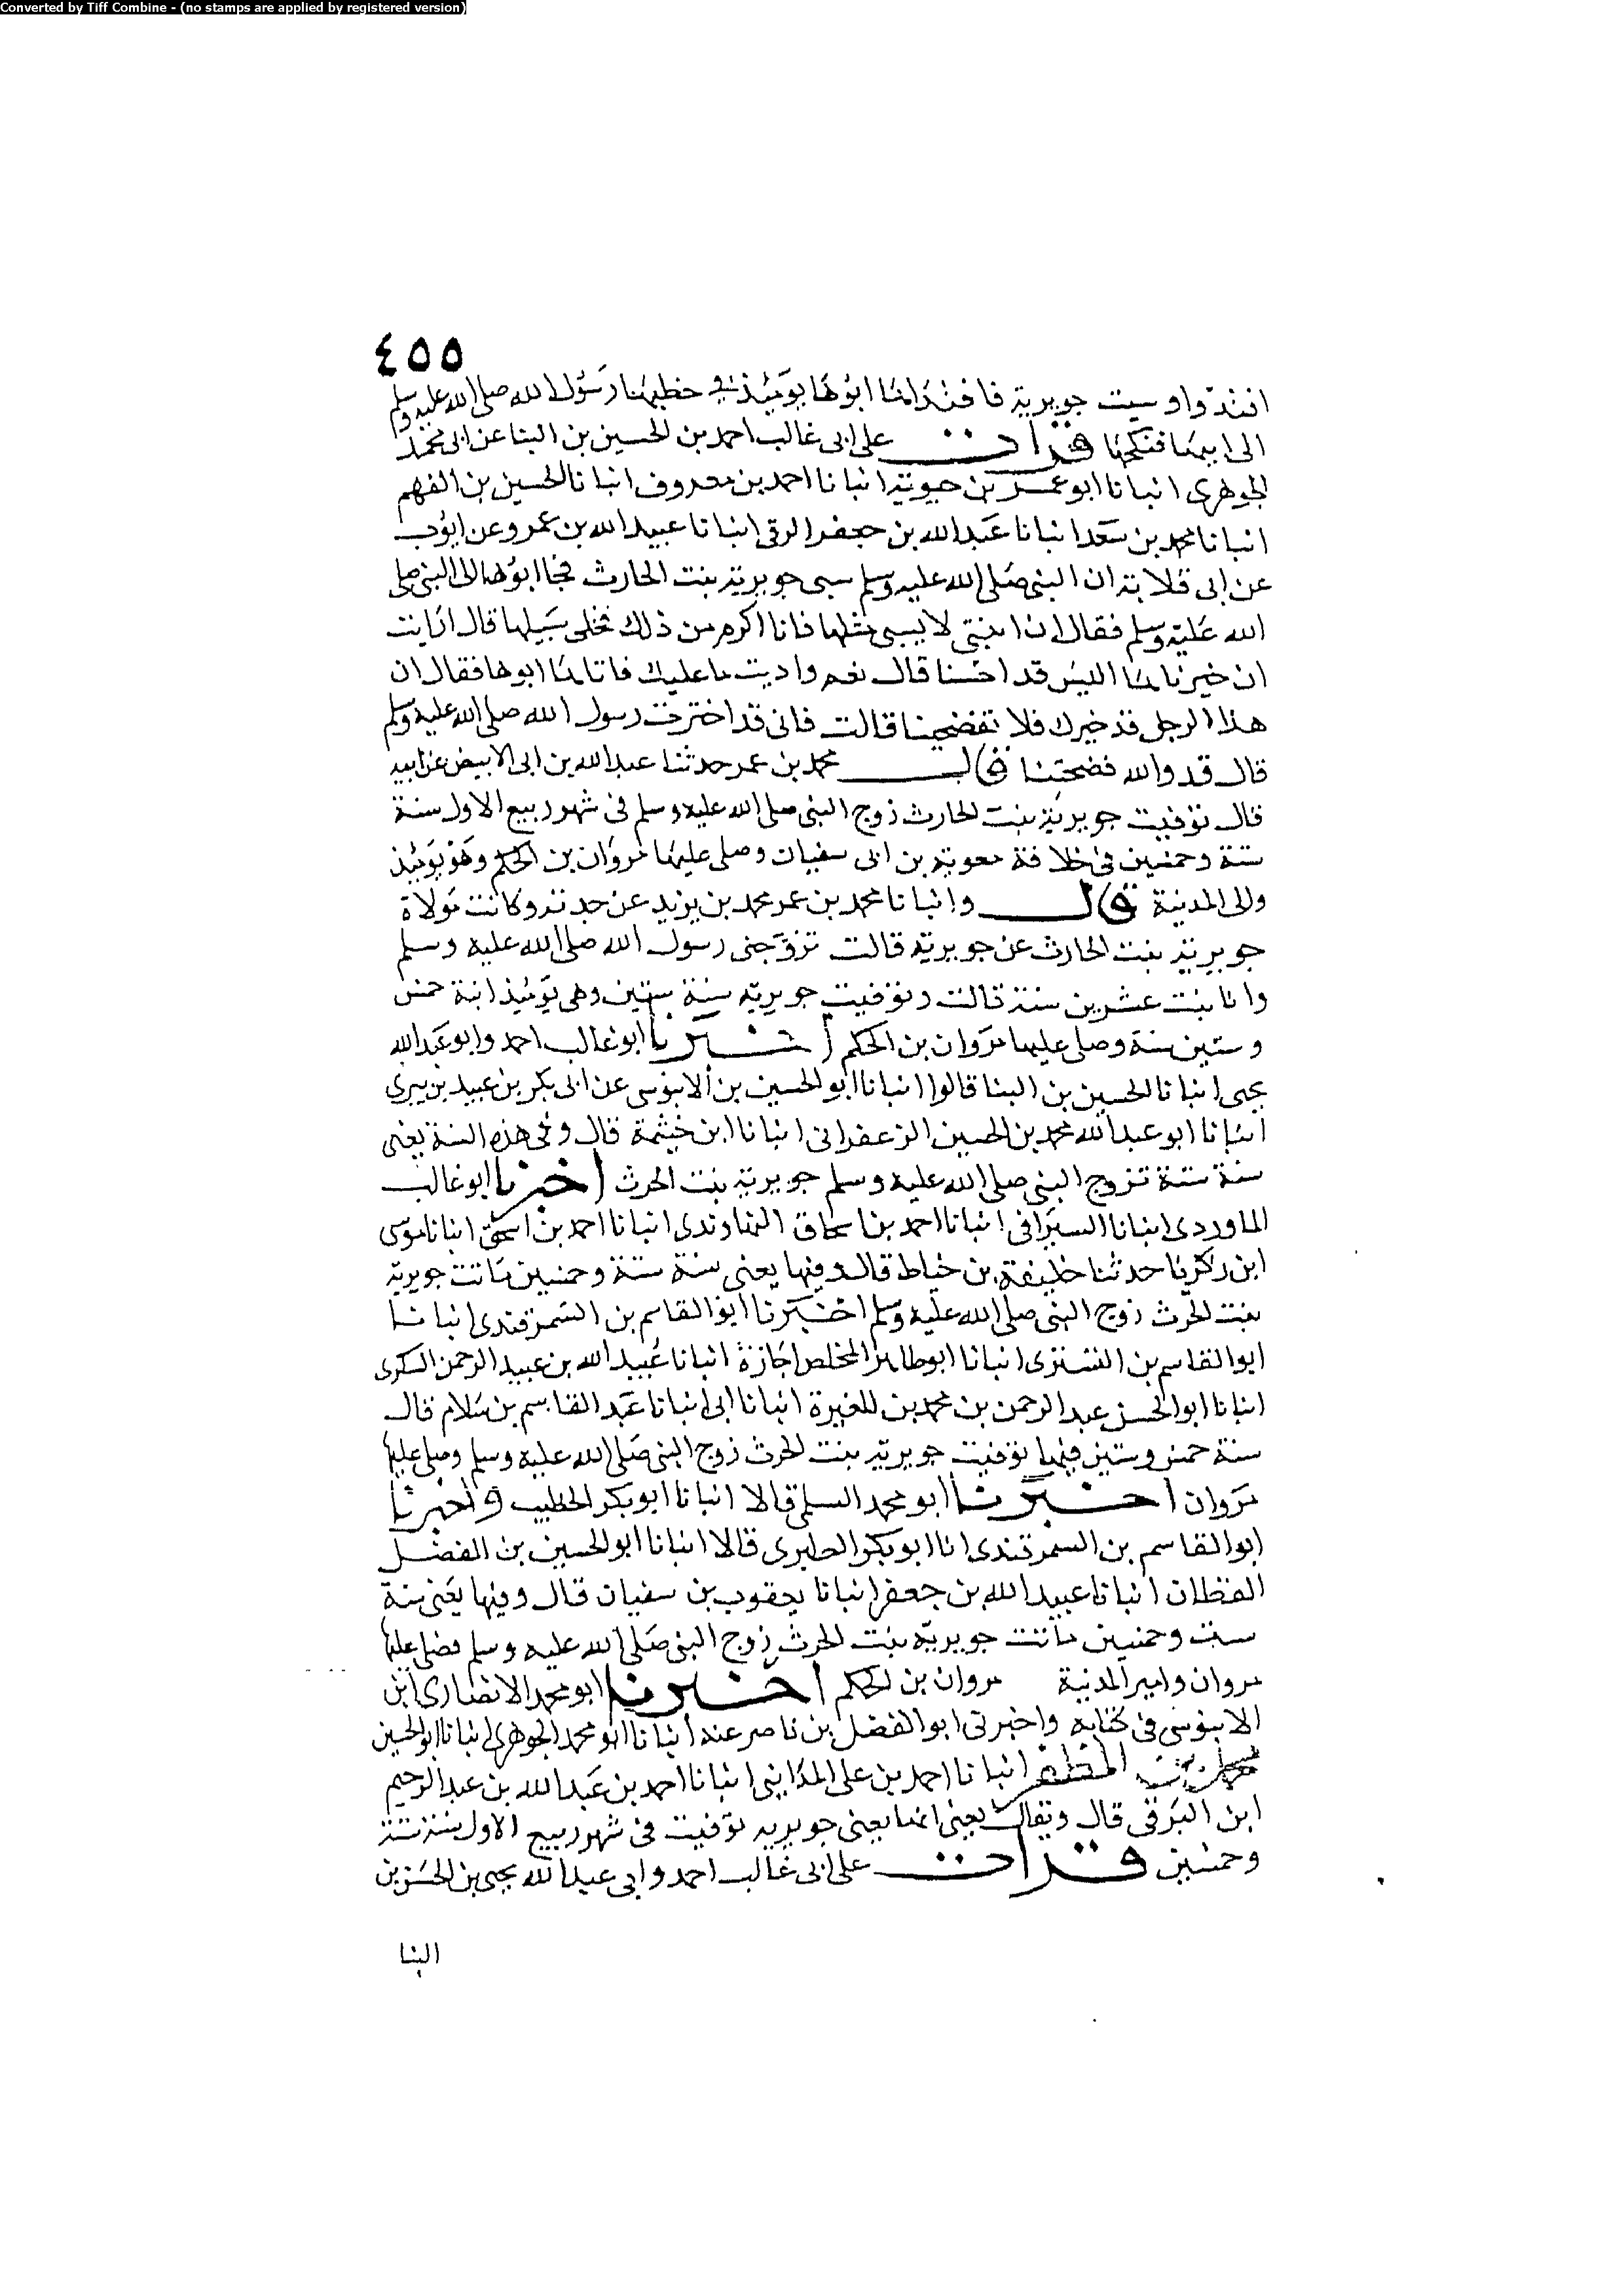 Converted by Tiff Combine - (no stamps are applied by registered version)
٤٥٥
جويرية فافتداها ابوها يومئذ خطبها رسول الله صلى الله عليه وسلم
الى ابيها فنكحها قرات على ابى غالب احمد بن الحسين بن البنا عن ابى محمد
الجوهرى انبانا ابو عمر بن حيويه انبانا احمد بن معروف انبانا الحسين بن الفهم
انبانا محمد بن سعد انبانا عبد الله بن جعفر الرقى انبانا عبيد الله بن عمرو عن ايوب
عن ابى قلابة ان النبى صلى الله عليه وسلم سبى جويرية بنت الحارث فجا ابوها الى النبى صلى
الله عليه وسلم فقال ان ابنتى لا يسبى مثلها فانا اكرم من ذلك فخلى سبيلها قال ارايت
ان خيرناها اليس قد احسنا قال نعم واديت ما عليك فاتاها ابوها فقال ان
هذا الرجل قد خيرك فلا تفضحينا قالت فانى قد اخترت رسول الله صلى الله عليه وسلم
قال قد والله فضحتنا قال محمد بن عمر حدثنا عبد الله بن ابى الابيض عن ابيه
قال توفيت جويرية بنت الحارث زوج النبى صلى الله عليه وسلم فى شهر ربيع الاول سنة
ستة وخمسين فى خلافة معوية بن ابى سفيان وصلى عليها مروان بن الحكم وهو يومئذ
والى المدينة قال وانبانا محمد بن عمر محمد بن يزيد عن جدته وكانت مولاة
جويرية بنت الحارث عن جويرية قالت تزوجنى رسول الله صلى الله عليه وسلم
وانا بنت عشرين سنة قالت وتوفيت جويرية سنة ستين وهى يومئذ ابنة خمس
وستين سنة وصلى عليها مروان بن الحكم اخبرنا ابو غالب احمد وابو عبد الله
يحيى انبانا الحسين بن البنا قالوا انبانا ابو الحسين بن الابنوسى عن ابى بكر بن عبيد بن بيرى
انبانا ابو عبد الله محمد بن الحسين الزعفرانى انبانا ابن خيثمة قال وفى هذه السنة يعنى
سنة ستة تزوج النبى صلى الله عليه وسلم جويرية بنت الحرث اخبرنا ابو غالب
الماوردى انبانا السيرافى انبانا احمد بن اسحاق النهاوندى انبانا احمد بن اسحق انبانا موسى
ابن زكريا حدثنا خليفة بن خياط قال وفيها يعنى سنة ستة وخمسين ماتت جويرية
بنت الحرث زوج النبى صلى الله عليه وسلم اخبرنا ابو القاسم بن السمرقندى انبانا
ابو القاسم بن انبانا ابو طاهر المخلص اجازة انبانا عبيد الله بن عبيد الرحمن السكرى
انبانا ابو الحسن عبد الرحمن بن محمد بن المغيرة انبانا ابى انبانا عبد القاسم بن سلام قال
سنة خمس وستين فيها توفيت جويرية بنت الحرث زوج النبى صلى الله عليه وسلم وصلى عليها
مروان اخبرنا ابو محمد السلمى قالا انبانا ابو بكر الخطيب واخبرنا
ابو القاسم بن السمرقندى انا ابو بكر الطبرى قالا انبانا ابو الحسين بن الفضل
القطان انبانا عبيد الله بن جعفر انبانا يعقوب بن سفيان قال وفيها يعنى سنة
ست وخمسين ماتت جويرية بنت الحرث زوج النبى صلى الله عليه وسلم فصلى عليها
مروان وامير المدينة مروان بن الحكم اخبرنا ابو محمد الانصارى ابن
الابنوسى فى كتابه واخبرنى ابو الفضل بن ناصر عنه انبانا ابو محمد الجوهرى انبانا ابو الحسين
المظفر انبانا احمد بن على المداينى انبانا احمد بن عبد الله بن عبد الرحيم
ابن البرقى قال ويقال يعنى انها يعنى جويرية توفيت فى شهر ربيع الاول سنة ستة
وخمسين قرات على ابى غالب احمد وابى عبد الله يحيى بن الحسن بن
البنا